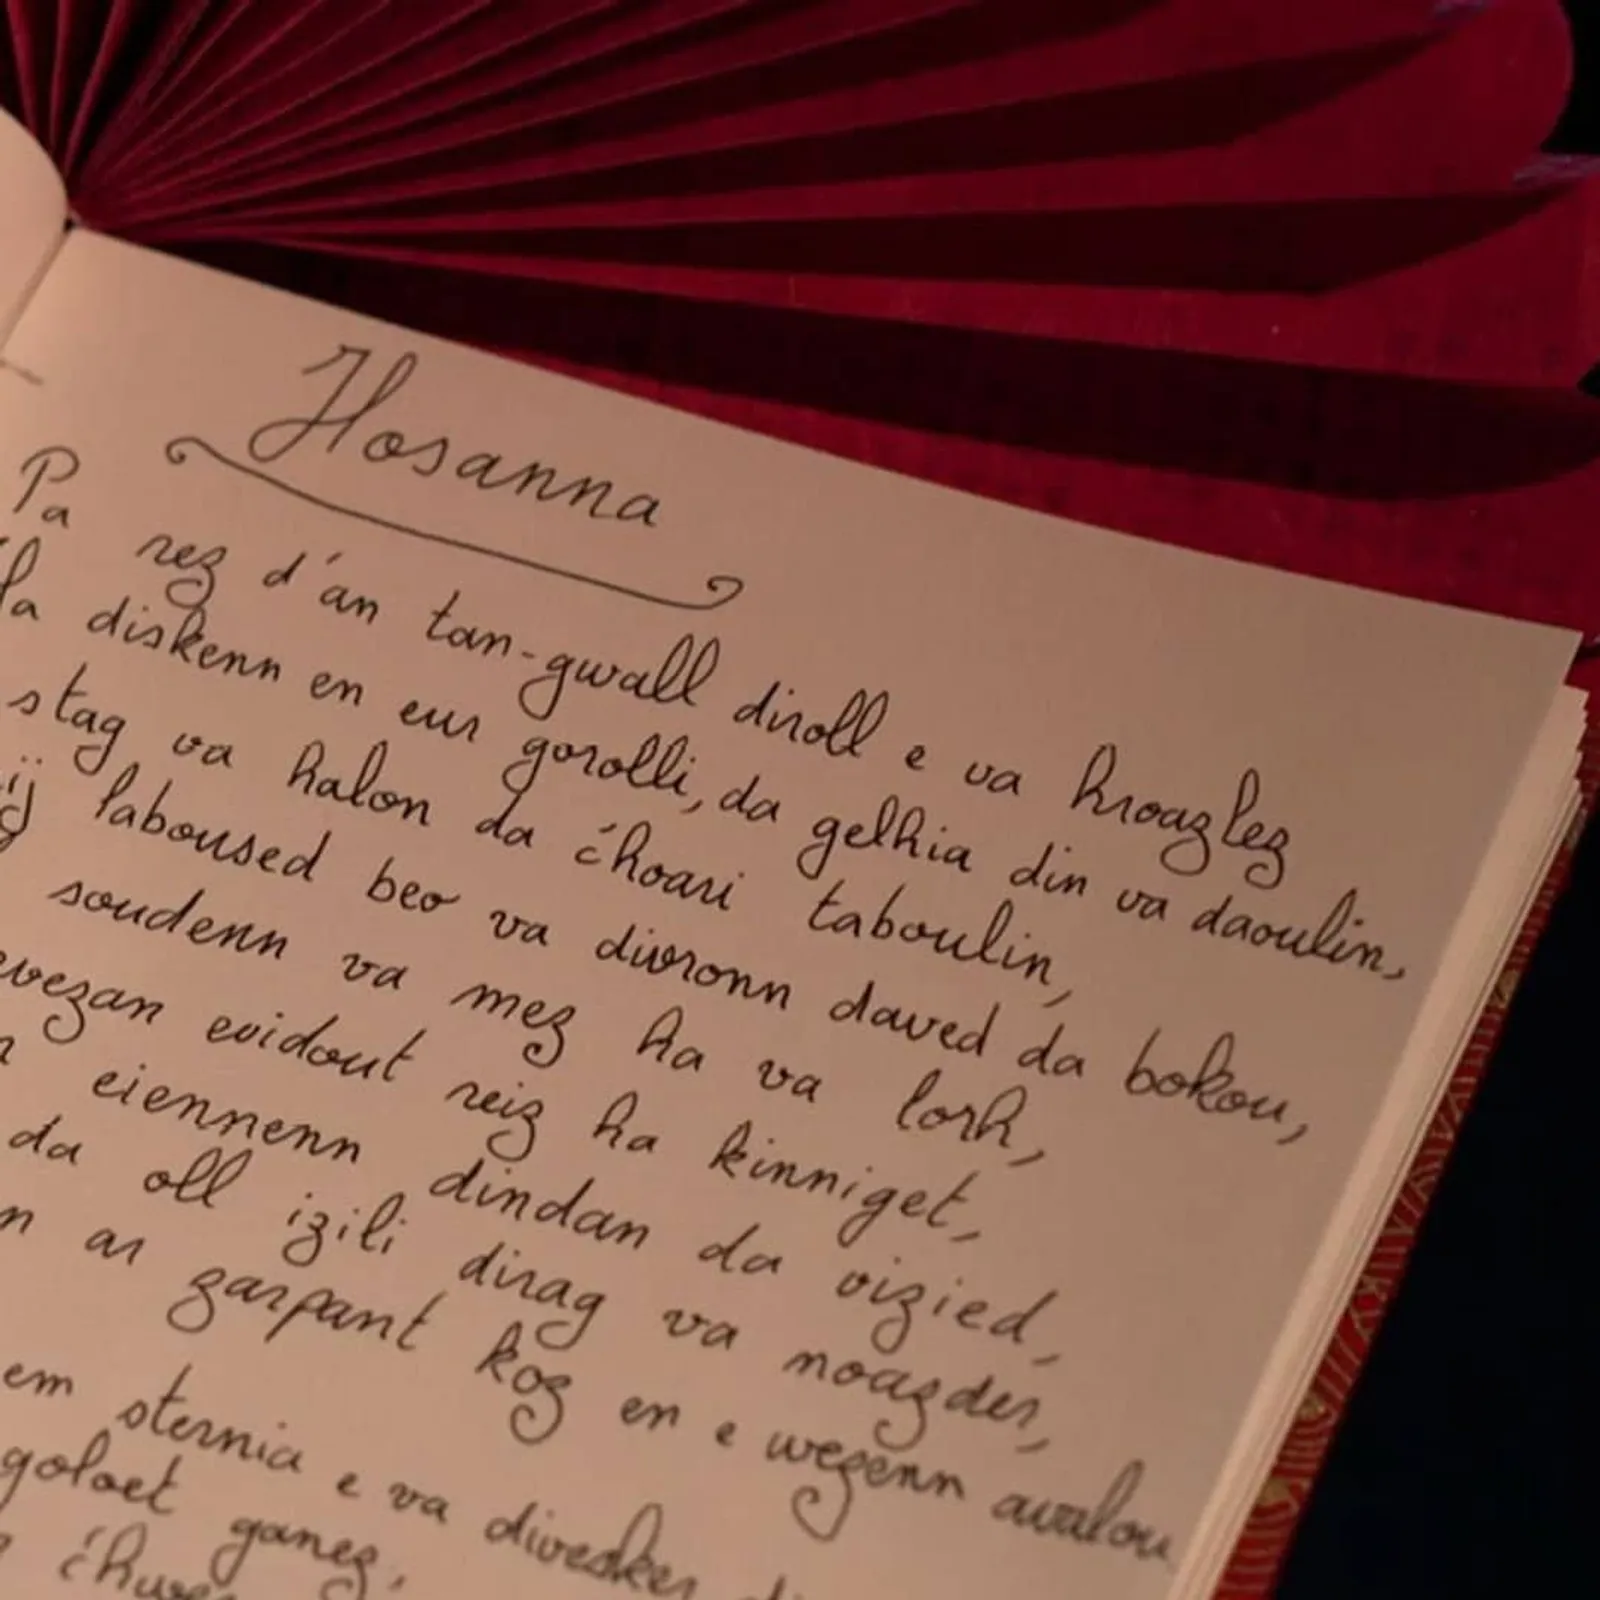 Hosanna
Pa rez d'an tan-gwall diroll e va hroazlez
diskenn en eur gorolli, da gelhia din va daoulin,
stag va halon da c'hoari taboulin,
laboused beo va divronn daved da bokou,
soudenn va mez ha va lorh,
evidout reiz ha kinniget,
eiennenn dindan da vizied,
da oll izili dirag va noazder,
ar zarpant koz en e wezenn avalou
sternia e va divesker
goloet ganez,